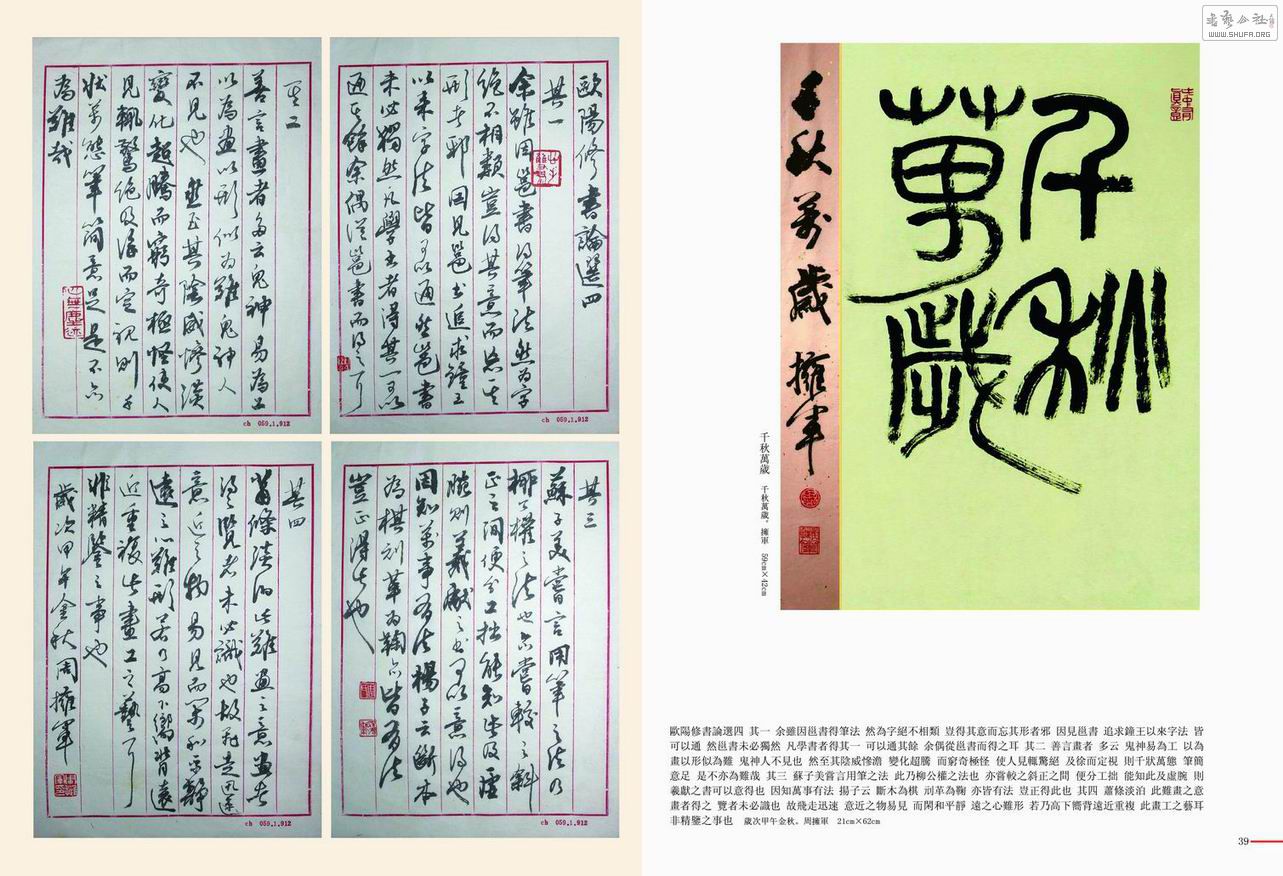 歐陽修書論選四
其一
余雖因邕書得筆法然為字
絕不相類豈得其意而忘其
形者邪因見邕書追求鐘王
以來字法皆可以通然邕書
未必獨然凡學書者得其一可以
通其餘余偶從邕書而得之耳
ch 059.1.912
其二
善言畫者多云鬼神易為工
以為畫以形似為難鬼神人
不見也然至其陰威慘澹
變化超騰而窮奇極怪使人
見輒驚絕及徐而定視則千
狀萬態筆簡意足是不亦
為難哉
ch 059.1.912
其三
蘇子美嘗言用筆之法此乃
柳公權之法也亦嘗較之斜
正之間便分工拙能知此及虛
腕則羲獻之書可以意得也
因知萬事有法揚子云斷木
為棋刓革為鞠亦皆有法
豈正得此也
ch 059.1.912
其四
蕭條淡泊此難畫之意畫者
得之覽者未必識也故飛走迅速
意近之物易見而閑和平靜
遠之心難形若乃高下嚮背遠
近重複此畫工之藝耳
非精鑒之事也
歲次甲午金秋周擁軍
ch 059.1.912
書藝公社
WWW.SHUFA.ORG
千秋
萬歲
千秋萬歲 擁軍
千秋萬歲 千秋萬歲。擁軍 59cm×42cm
歐陽修書論選四 其一 余雖因邕書得筆法 然為字絕不相類 豈得其意而忘其形者邪 因見邕書 追求鐘王以來字法 皆
可以通 然邕書未必獨然 凡學書者得其一 可以通其餘 余偶從邕書而得之耳 其二 善言畫者 多云 鬼神易為工 以為
畫以形似為難 鬼神人不見也 然至其陰威慘澹 變化超騰 而窮奇極怪 使人見輒驚絕 及徐而定視 則千狀萬態 筆簡
意足 是不亦為難哉 其三 蘇子美嘗言用筆之法 此乃柳公權之法也 亦嘗較之斜正之間 便分工拙 能知此及虛腕 則
羲獻之書可以意得也 因知萬事有法 揚子云 斷木為棋 刓革為鞠 亦皆有法 豈正得此也 其四 蕭條淡泊 此難畫之意
畫者得之 覽者未必識也 故飛走迅速 意近之物易見 而閑和平靜 遠之心難形 若乃高下簡背遠近重複 此畫工之藝耳
非精鑒之事也 歲次甲午金秋。周擁軍 21cm×62cm
39